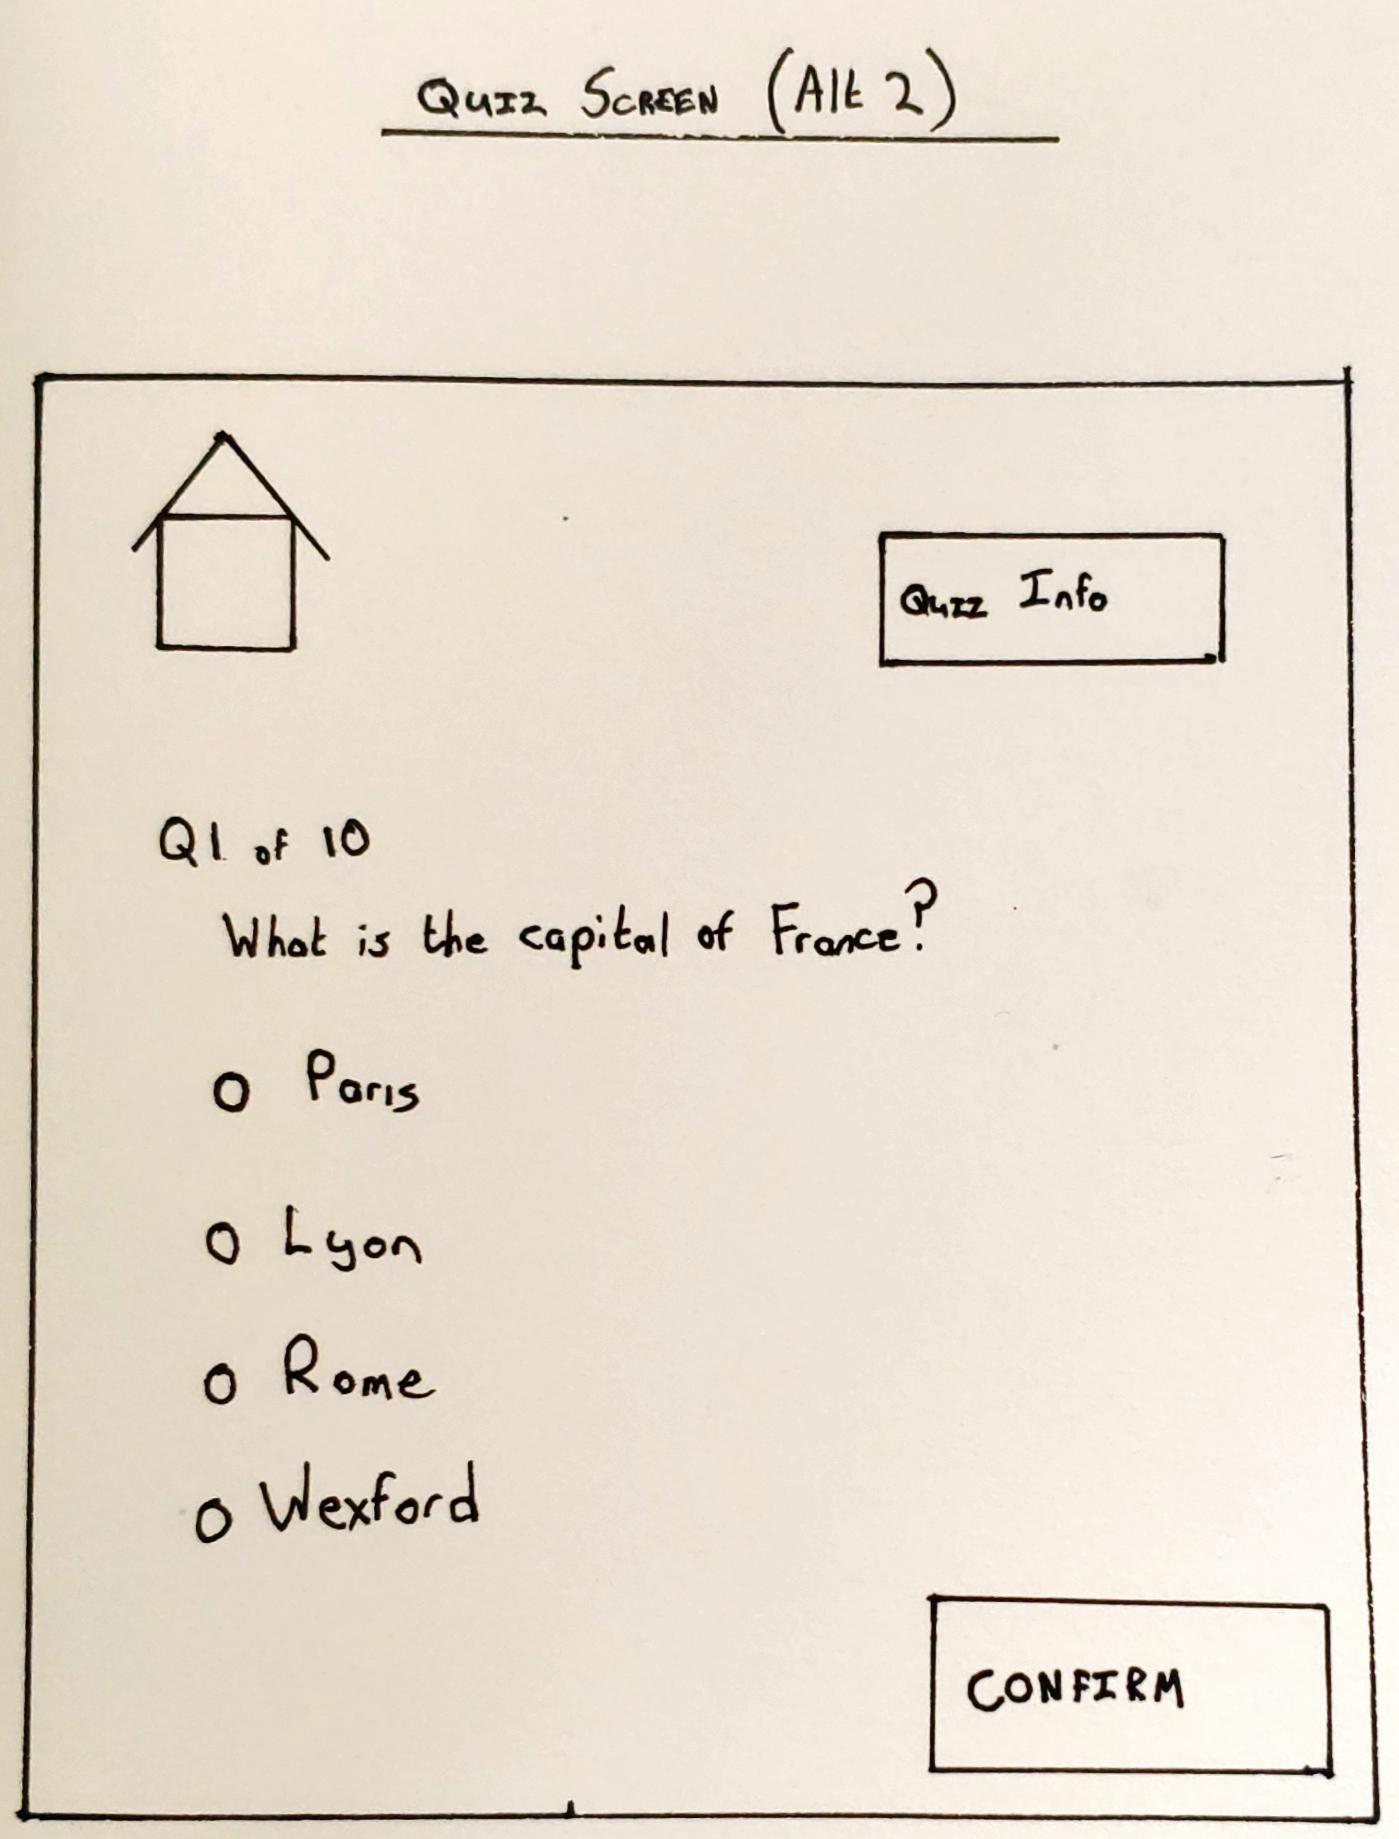 QUIZ SCREEN (Alt 2)
QUIZ Info
Q1 of 10
What is the capital of France?
Paris
Lyon
Rome
Wexford
CONFIRM